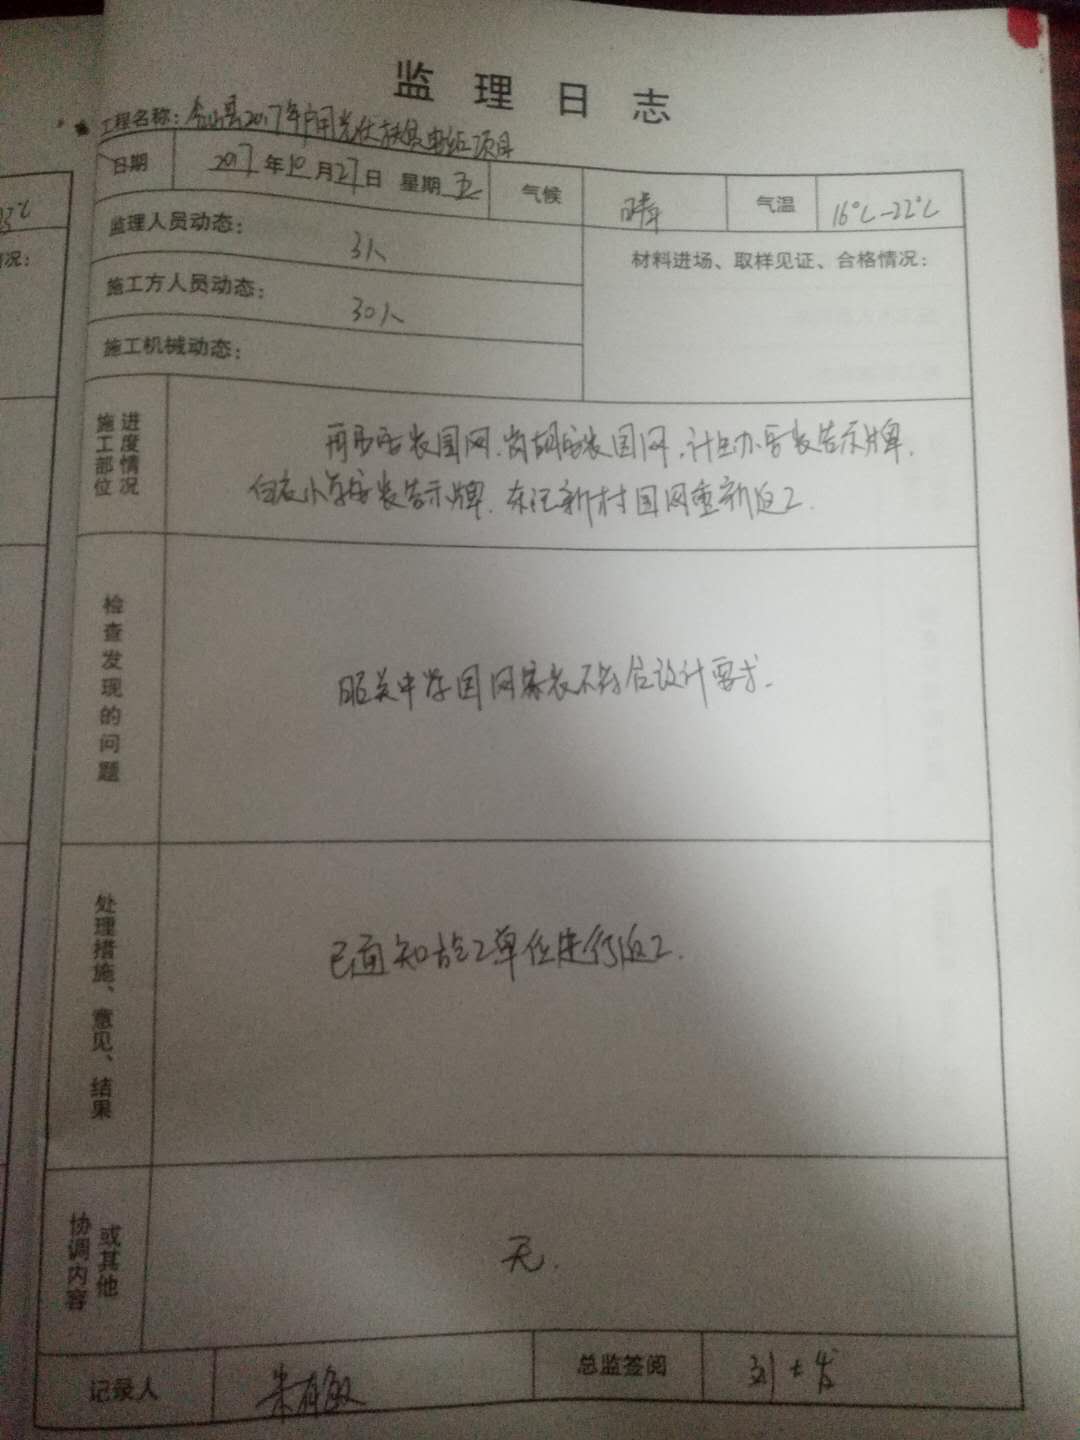 监理日志
工程名称：含山县2017年户用光伏扶贫电站项目
日期 2017年10月27日 星期五 气候 晴 气温 16℃-22℃
监理人员动态： 3人
材料进场、取样见证、合格情况：
施工方人员动态： 30人
施工机械动态：
施工部位
进度情况
安装围网、安装围网、计生办安装告示牌、
小学安装告示牌、新村围网重新返工.
检查发现的问题
昭关中学围网安装不符合设计要求.
处理措施、意见、结果
已通知施工单位进行返工.
协调内容
或其他
无.
记录人 总监签阅
23℃
情况：